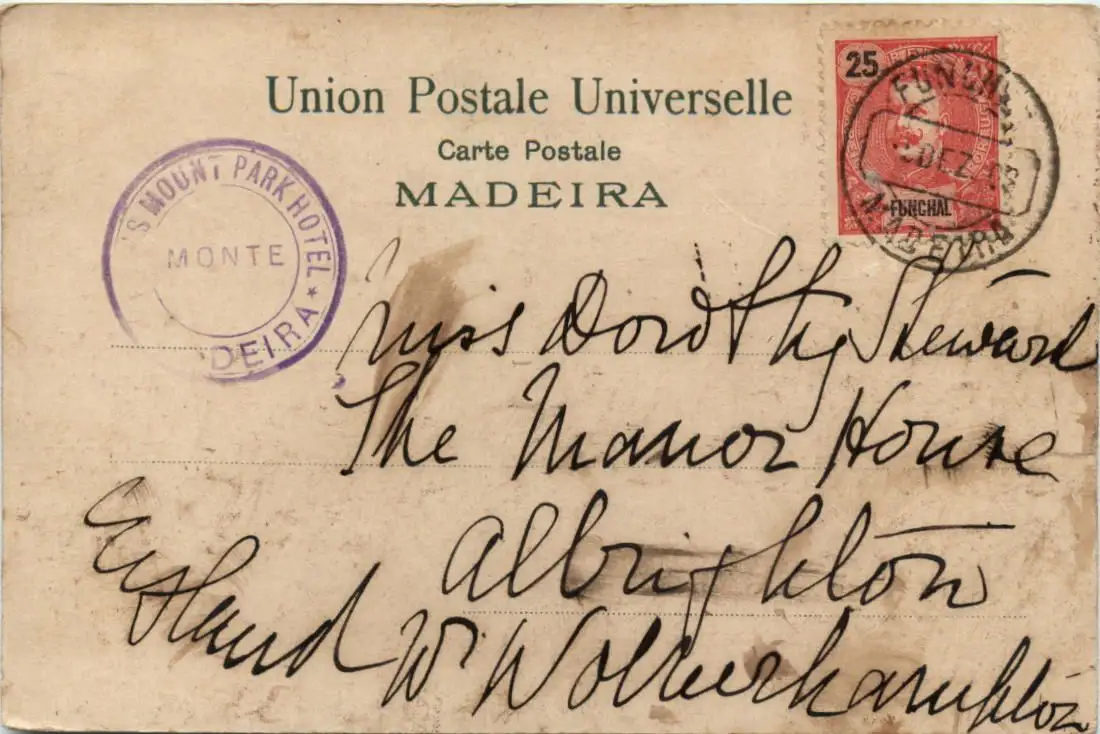 Union Postale Universelle
Carte Postale
MADEIRA
25
FUNCHAL
FUNCHAL
DEZ
MADEIRA
'S MOUNT PARK HOTEL *
MONTE
DEIRA
Miss Dorothy Steward
The Manor House
Albrighton
Wolverhampton
England